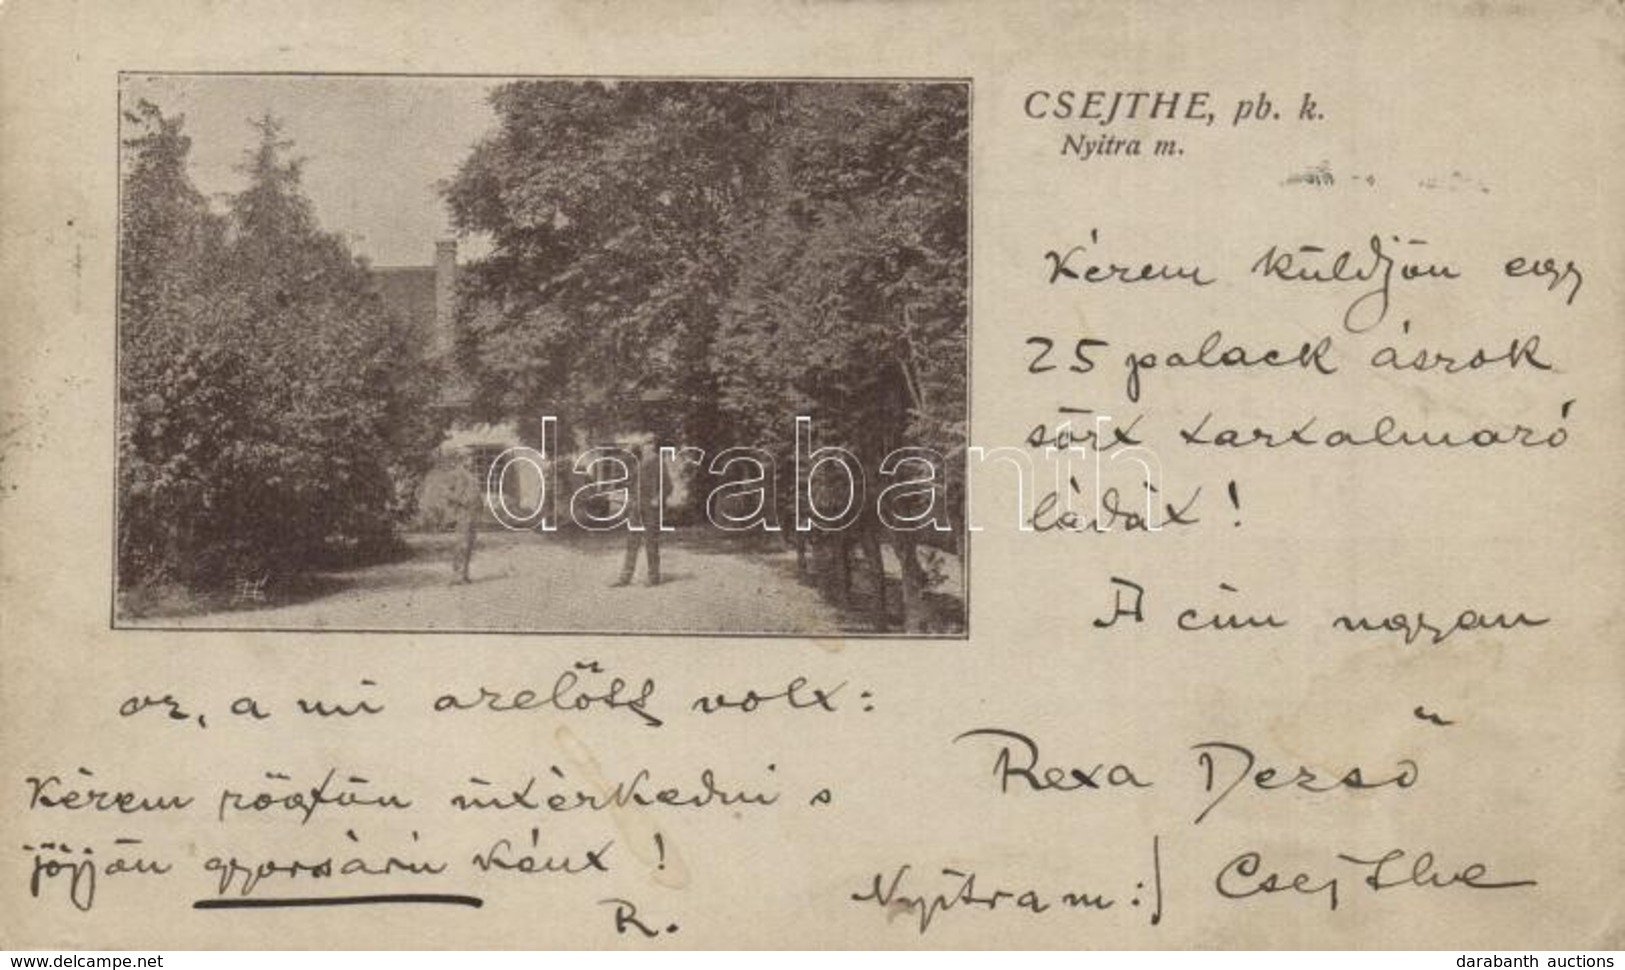 CSEJTHE, pb. k.
Nyitra m.
Kérem küldjön egy
25 palack ászok
sört tartalmazó
ládát!
A cím ugyan
az, a mi azelőtt volt:
Rexa Dezső
Nyitra m:) Csejthe
Kérem rögtön intézkedni s
jöjjön gyorsáru ként!
R.
darabanth
www.delcampe.net
darabanth auctions